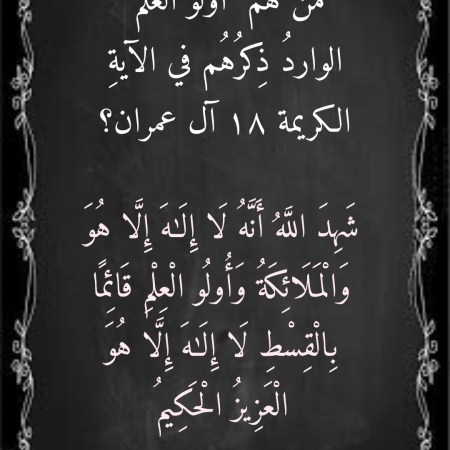 من هم "أولو العلم"
الواردُ ذِكرُهُم في الآيةِ
الكريمة ١٨ آل عمران؟
شَهِدَ اللَّهُ أَنَّهُ لَا إِلَـٰهَ إِلَّا هُوَ
وَالْمَلَائِكَةُ وَأُولُو الْعِلْمِ قَائِمًا
بِالْقِسْطِ لَا إِلَـٰهَ إِلَّا هُوَ
الْعَزِيزُ الْحَكِيمُ